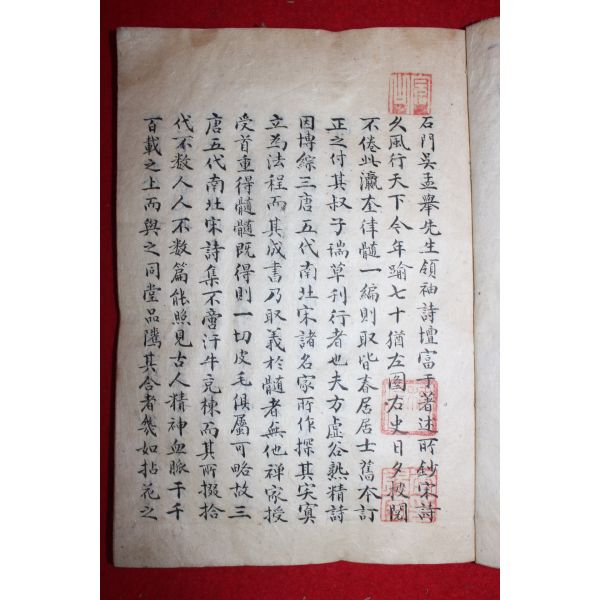 石門吳孟舉先生領袖詩壇富于著述所鈔宋詩
久風行天下今年踰七十猶左圖右史日夕披閱
不倦此瀛奎律髓一編則取皆春居士舊本訂
正之付其叔子瑞草刊行者也夫方虛谷熟精詩
因博綜三唐五代南北宋諸名家所作探其突奧
立為法程而其成書乃取義於髓者無他禅家授
受首重得髓髓既得則一切皮毛俱屬可略故三
唐五代南北宋詩集不啻汗牛充棟而其所掇拾
代不數人人不數篇能照見古人精神血脈于千
百載之上而與之同堂品騭其合者幾如拈花之